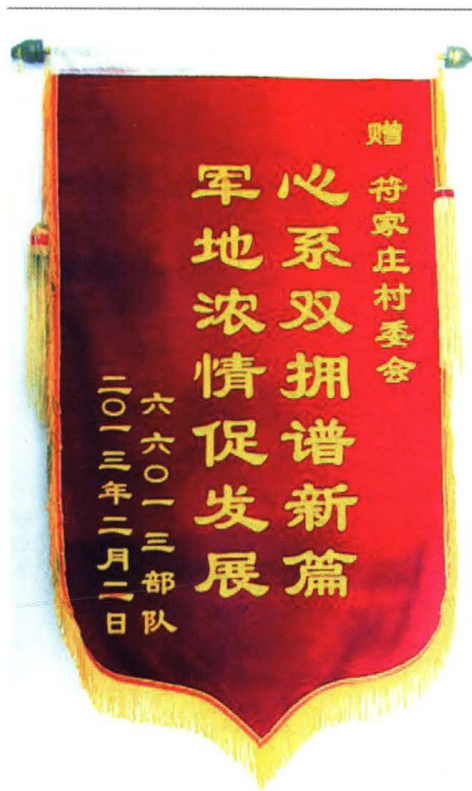 赠 符家庄村委会
心系双拥谱新篇
军地浓情促发展
六六〇一三部队
二〇一三年二月二日